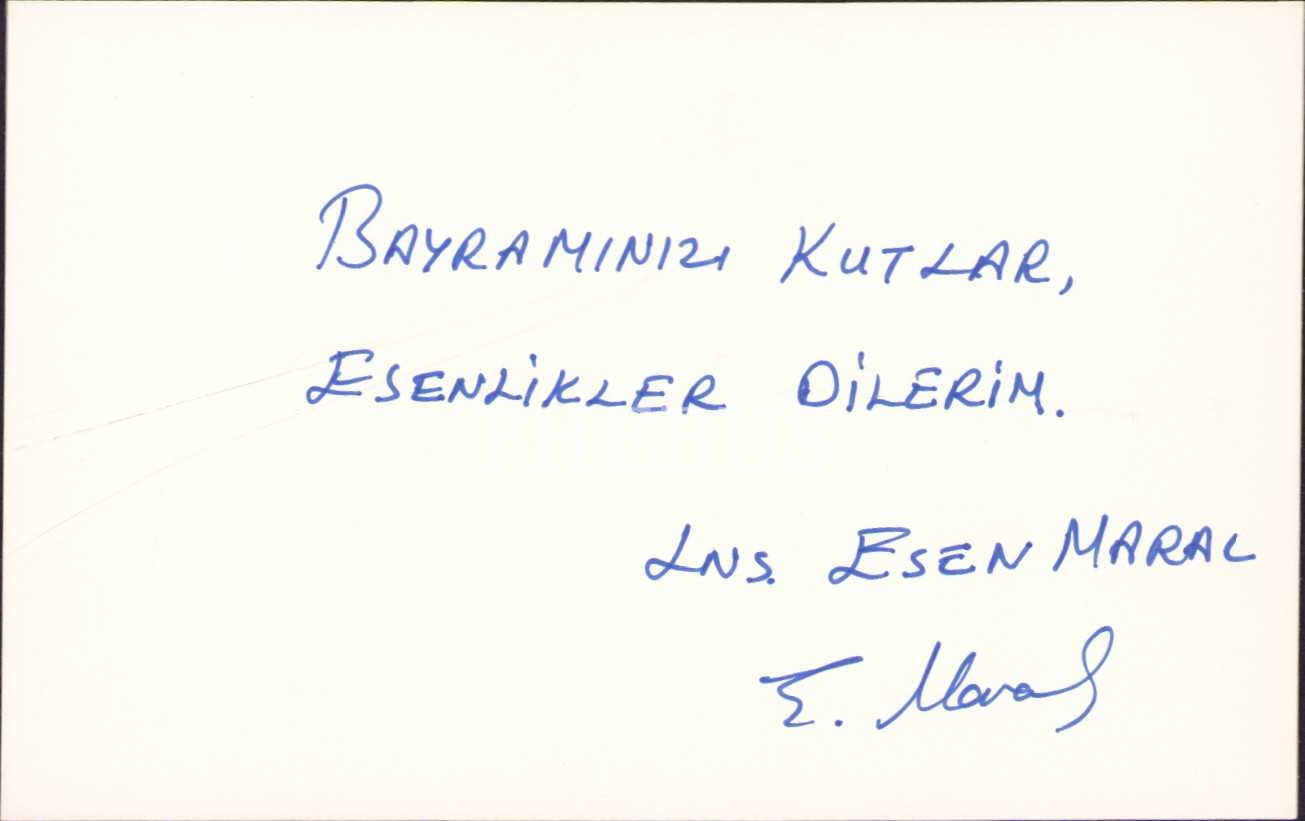 BAYRAMINIZI KUTLAR,
ESENLİKLER DİLERİM.
LNS. ESEN MARAL
E. Maral